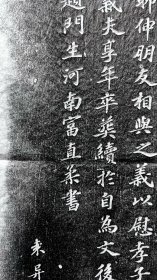 聊伸朋友相與之義以慰孝子
夫享年卒葬續於自為文後
門生河南富直柔書
来昇